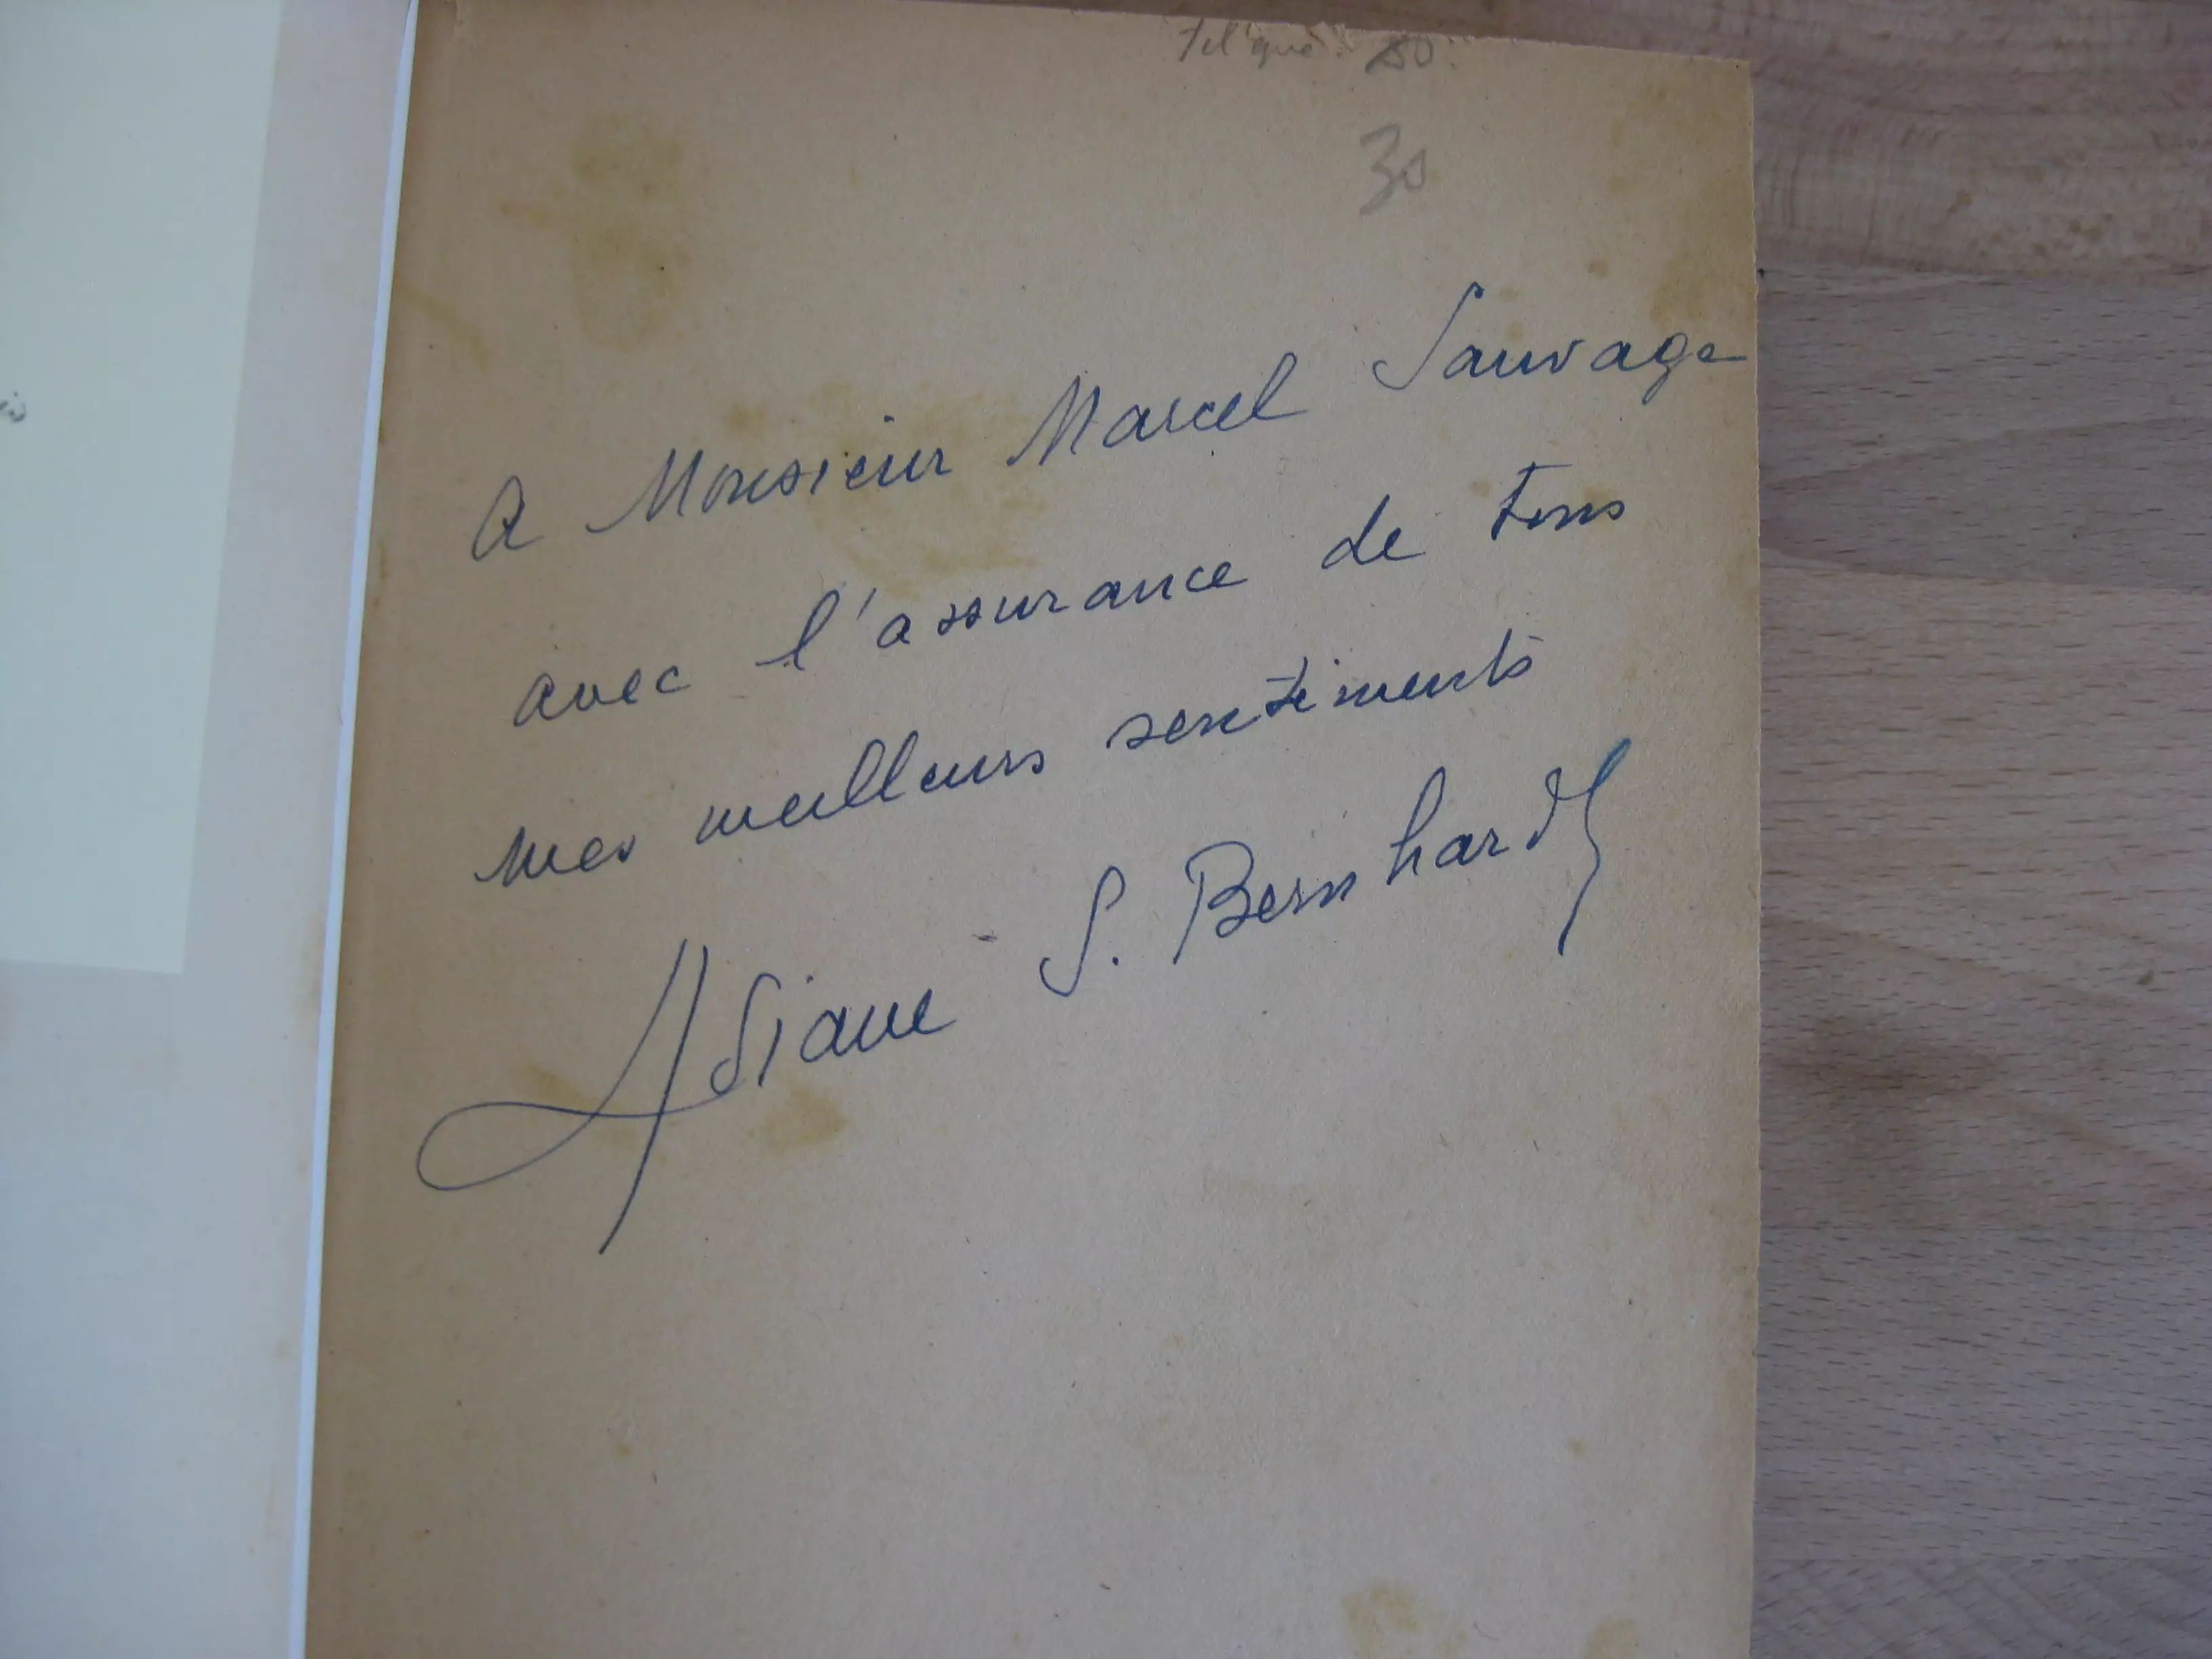 tel que 80
30
A Monsieur Marcel Sauvage
avec l'assurance de tous
mes meilleurs sentiments
S. Bernhardt